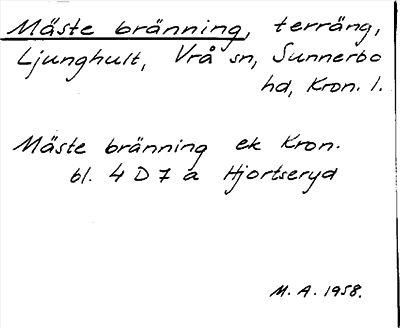 Mäste bränning, terräng,
Ljunghult, Vrå sn, Sunnerbo
hd, Kron. l.
Mäste bränning ek Kron.
bl. 4 D 7 a Hjortseryd
M. A. 1958.